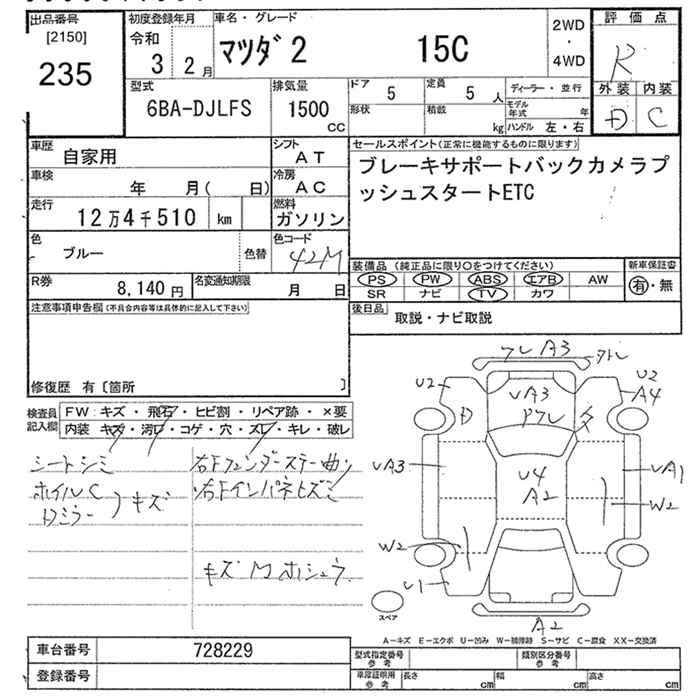 出品番号
[2150]
235
初度登録年月
令和
3 2月
車名・グレード
マツダ2 15C
2WD
・
4WD
評価点
R
外装 内装
D C
型式
6BA-DJLFS
排気量
1500
CC
ドア
5
定員
5 人
形状
積載
kg
ディーラー・並行
モデル年式 年
ハンドル 左・右
車歴
自家用
シフト
AT
車検
年 月( 日)
冷房
AC
走行
12万4千510 km
燃料
ガソリン
色
ブルー
色替
色コード
42M
R券
8,140円
名変通知期限
月 日
セールスポイント(正常に機能するものに限ります)
ブレーキサポートバックカメラプ
ッシュスタートETC
装備品(純正品に限り○をつけてください)
新車保証書
PS PW ABS エアB AW
SR ナビ TV カワ
有・無
後日品
取説・ナビ取説
注意事項申告欄(不具合内容等は具体的に記入して下さい)
修復歴 有〔箇所 〕
検査員
記入欄
FW:キズ・飛石・ヒビ割・リペア跡・×要
内装 キズ・汚レ・コゲ・穴・スレ・キレ・破レ
シートシミ
ホイルC
Dミラー
)キズ
右Fフェンダーステー曲り
右Fインパネヒズミ
キズ
ワレ A3
外レ
U2
U2
A4
D
UA3
Pワレ
UA3
U4
A2
UA1
W2
W2
U1
A2
スペア
A―キズ E―エクボ U―凹み W―補修跡 S―サビ C―腐食 XX―交換済
車台番号
728229
登録番号
型式指定番号
参考
類別区分番号
参考
車庫証明用
参考
長さ cm
幅 cm
高さ cm